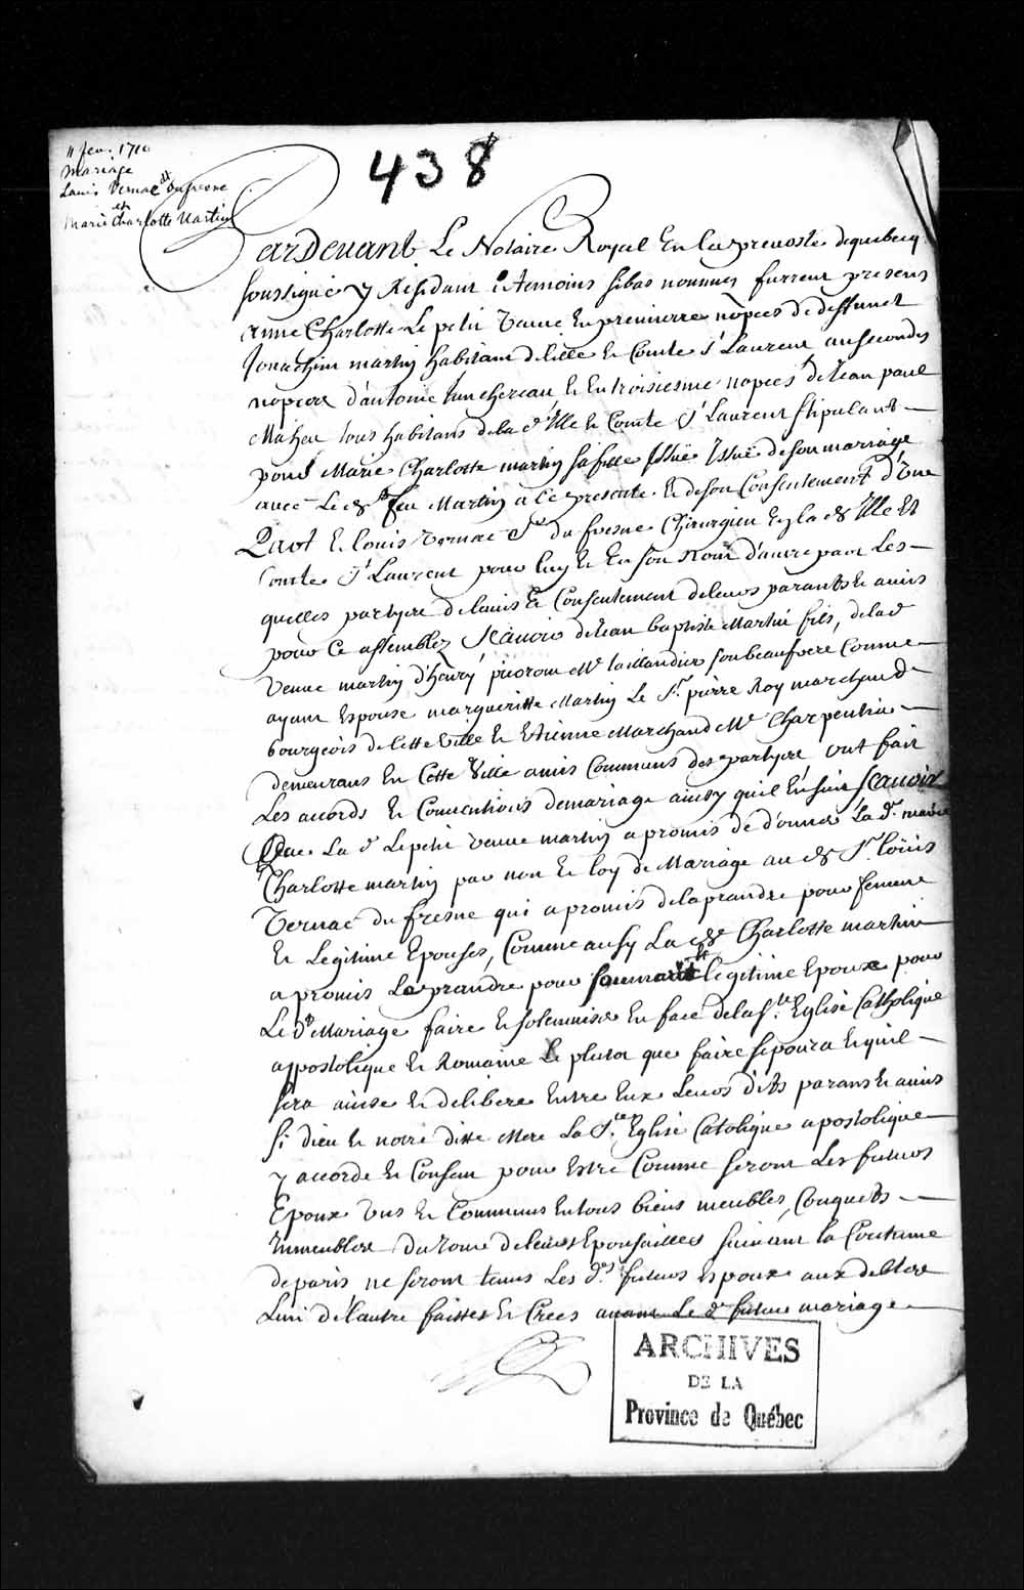 11 fev. 1710
Mariage
Louis Vernac dt Dufresne
et
Marie Charlotte Martin
438
Pardevant Le Notaire Royal En la prevosté de quebecq
soussigné y Residant & temoins sibas nommez furrent presens
anne Charlotte Le petit veuve En premierre nopces de deffunct
Jouachim martin habitant de lisle & Comté St Laurent en secondes
nopces d'antoine huchereau & En troisiesme nopces de Jean paul
Maheu tous habitans de la d Isle & Comté St Laurent stipulant
pour Marie Charlotte martin sa fille Issüe de son mariage
avec Le dt feu Martin a ce presente & de son Consentement d'Une
Part & louis vernac Sr du fresne Chirurgien En la de Isle Et
Comté St Laurent pour luy & En son Nom d'autre part Les
quelles partyes de lavis & Consentement de leurs parants & amis
pour Ce assemblez Scavoir de Jean baptiste Martin fils, de la d
veuve martin d'henry Mr taillandier son beaufrere Comme
ayant Espousé margueritte Martin Le Sr pierre Roy marchand
bourgeois de cette ville & Etienne Marchand Mr Charpentier
demeurans En Cette Ville amis Communs des partyes ont fait
Les accords & Conventions de mariage ainsy quil En suit Scavoir
Que La d Lepetit veuve martin a promis de donner La de marie
Charlotte martin par nom & loy de Mariage au dt Sr loüis
Vernac du fresne qui a promis de la prandre pour femme
Et Legitime Epouses, Comme ausy La de Charlotte martin
a promis Le prandre pour legitime Epoux pour
Le dt Mariage faire & solemniser En face de la Ste Eglise Catholique
appostolique & Romaine Le plutot que faire se poura & quil
sera avisé & deliberé Entre Eux Leurs dits parans & amis
si dieu & notre ditte Mere La Ste Eglise Catolique apostolique
y accorde & Consent pour Estre Comme seront Les futurs
Epoux Uns & Communs En tous biens meubles, Conquets
Immeubles Du Jour de leurs Epousailles suivant la Coutume
de paris ne seront tenus Les ds futurs Espoux aux debtes
Lun de l'autre faittes & Crees avant Le dt futur mariage
ARCHIVES
DE LA
Province de Québec